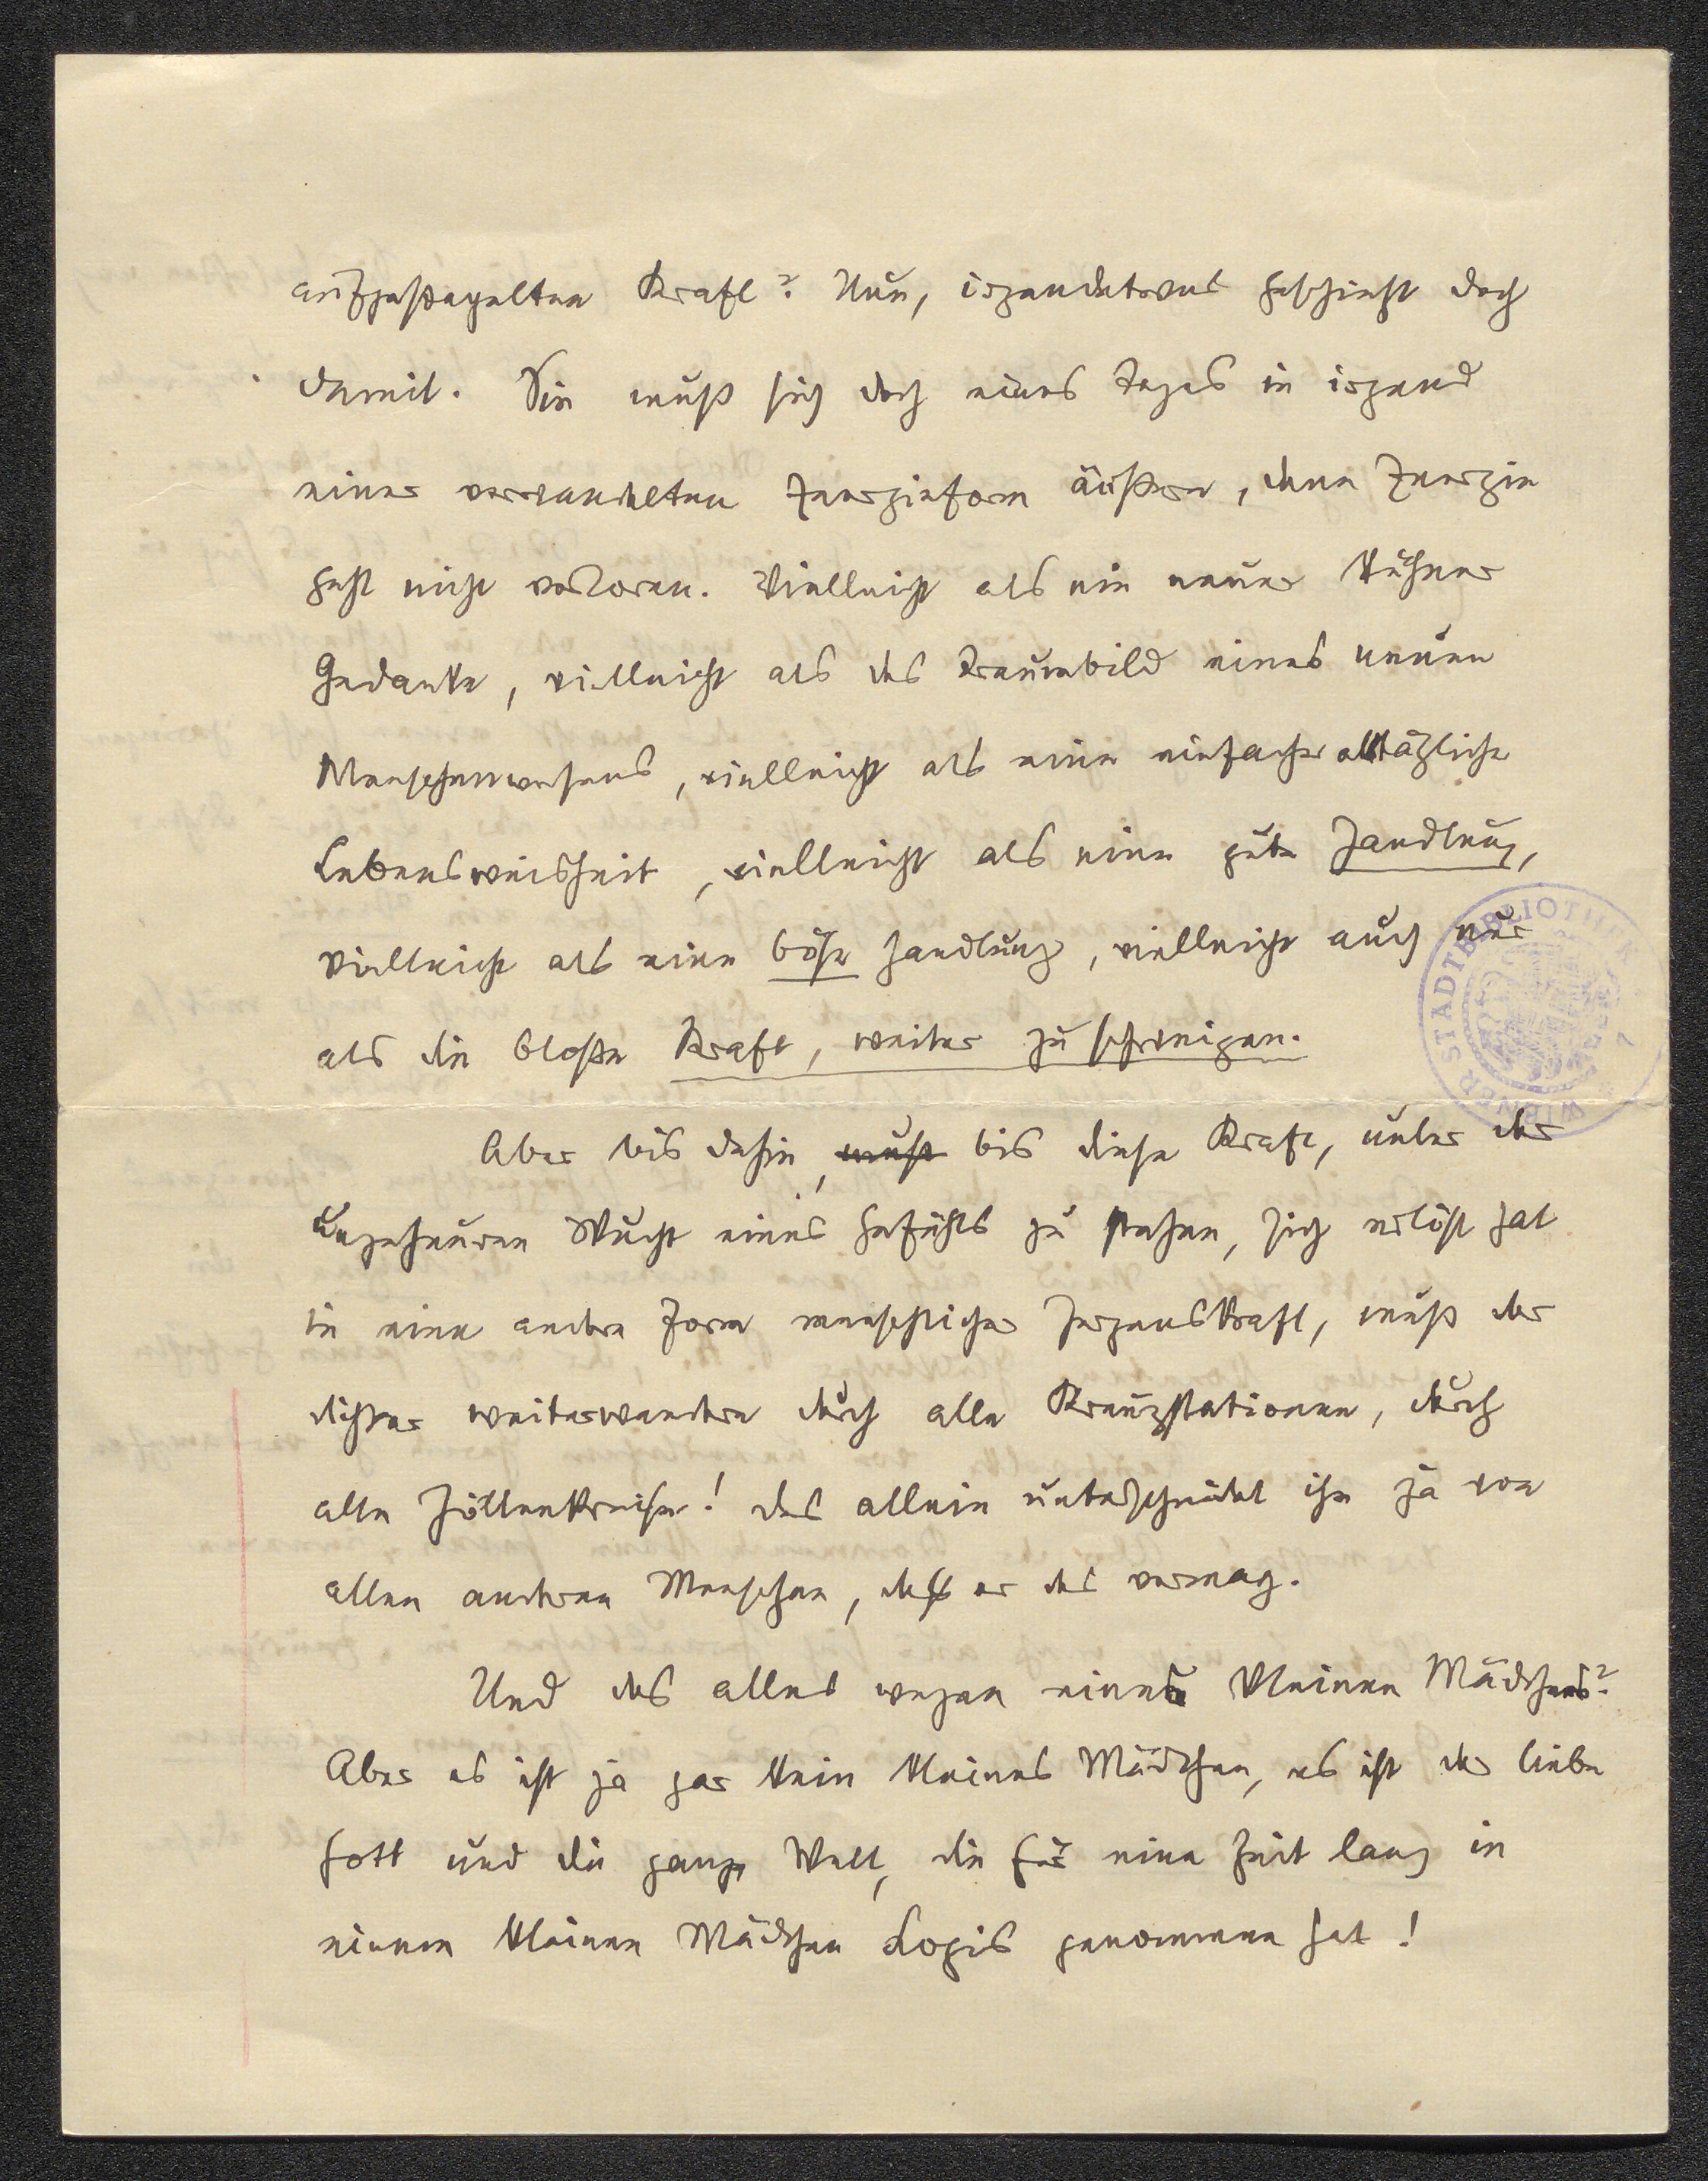 aufgestapelten Kraft? Nun, irgendetwas geschieht doch
damit. Sie muß sich doch eines Tages in irgend
einer verwandelten Energieform äußern, denn Energie
geht nicht verloren. Vielleicht als ein neuer kühner
Gedanke, vielleicht als das Traumbild eines neuen
Menschenwesens, vielleicht als eine einfache alltägliche
Lebensweisheit, vielleicht als eine gute Handlung,
vielleicht als eine böse Handlung, vielleicht auch nur
als die bloße Kraft, weiter zu schweigen.
Aber bis dahin, muß bis diese Kraft, unter der
ungeheuren Wucht eines Gefühls zu stehen, sich erlöst hat
in eine andere Form menschlicher Herzenskraft, muß der
Dichter weiterwandern durch alle Kreuzstationen, durch
alle Höllenkreise! Das allein unterscheidet ihn ja von
allen anderen Menschen, daß er das vermag.
Und das alles wegen eines kleinen Mädchens?
Aber es ist ja gar kein kleines Mädchen, es ist der liebe
Gott und die ganze Welt, die für eine Zeit lang in
einem kleinen Mädchen Logis genommen hat!
WIENER STADTBIBLIOTHEK